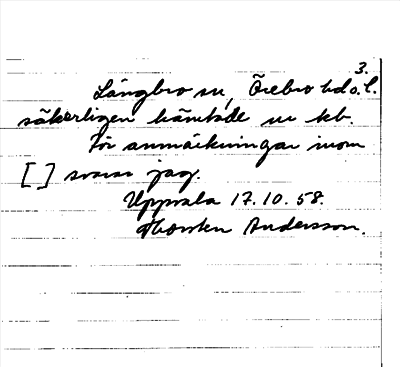 3.
Längbro sn, Örebro hd o. l.
säkerligen hämtade ur kb.
För anmärkningar inom
[ ] svarar jag.
Uppsala 17.10.58.
Thorsten Andersson.